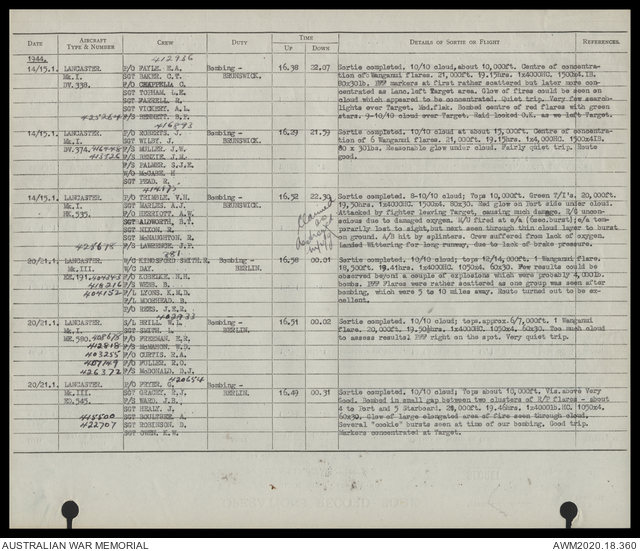 DATE AIRCRAFT TYPE & NUMBER CREW DUTY TIME UP DOWN DETAILS OF SORTIE OR FLIGHT REFERENCES.
1944. 412936
14/15.1. LANCASTER. P/O FAYLE. E.A. Bombing - 16.38 22.07 Sortie completed. 10/10 cloud, about 10,000ft. Centre of concentra-
Mk.I. SGT BAKER. C.T. BRUNSWICK. tion of Wanganui flares. 21,000ft. 19.15hrs. 1x4000HC. 1500x4.IB.
DV.338. P/O CHAPPELLA C. 80x30lb. PFF markers at first rather scattered but later more con-
SGT TOPHAM. L.E. centrated as Lanc. left Target area. Glow of fires could be seen on
SGT FARRELL. R. cloud which appeared to be concentrated. Quiet trip. Very few search-
SGT VICKERY. A.L. lights over Target. Mod.flak. Bombed centre of red flares with green
425264 F/S BENNETT. B.F. stars. 9-10/10 cloud over Target. Raid looked O.K. as we left Target.
416893
14/15.1. LANCASTER. P/O ROBERTS. J. Bombing - 16.29 21.59 Sortie completed. 10/10 cloud at about 15,000ft. Centre of concentra-
Mk.I. SGT WILBY. J. BRUNSWICK. tion of 6 Wanganui flares. 21,000ft. 19.15hrs. 1x4,000HC. 1500x4IB.
DV.374. 416448 F/S MULLER. J.W. 80 x 30lbs. Reasonable glow under cloud. Fairly quiet trip. Route
413726 F/S RENNIE. J.M. good.
F/S PALMER. S.J.E.
W/O McCABE. H
SGT READ. R.
14/15.1. LANCASTER. P/O TRIMBLE. V.H. Bombing - 16.52 22.30 Sortie completed. 8-10/10 cloud; Tops 10,000ft. Green T/I's. 20,000ft.
Mk.I. SGT MARLES. A.J. BRUNSWICK. 19,50hrs. 1x4000HC. 1500x4. 80x30. Red glow on Port side under cloud.
ME.535. F/O HERRIOTT. A.W. Attacked by fighter leaving Target, causing much damage. R/G uncon-
SGT ALDWORTH. B.T. scious due to damaged oxygen. M/U fired at e/a (6sec.burst);e/a tem-
SGT NIXON. R. porarily lost to sight,but next seen through thin cloud layer to burst
SGT McNAUGHTON. R. on ground. A/G hit by splinters. Crew suffered from lack of oxygen.
425675 F/S LARRIMER. J.F. Landed Wittering for long runway, due to lack of brake pressure.
Claimed as destroyed
381
20/21.1. LANCASTER. W/C KINGSFORD SMITH.R. Bombing - 16.58 00.01 Sortie completed. 10/10 cloud; tops 12/14,000ft. 1 Wanganui flare.
Mk.III. W/C DAY. BERLIN. 18,500ft. 19.41hrs. 1x4000HC. 1050x4. 60x30. Few results could be
EE.191. 404543 F/O KOBELKE. N.H. observed beyond a couple of explosions which were probably 4,000lb.
418216 F/S WEBB. B. bombs. PFF Flares were rather scattered as one group was seen after
404152 F/L LYONS. K.M.D. bombing, which were 5 to 10 miles away. Route turned out to be ex-
F/L MOORHEAD. B. cellent.
F/O REES. J.E.R.
402933
20/21.1. LANCASTER. S/L BRILL. W.L. Bombing - 16.51 00.02 Sortie completed. 10/10 cloud; tops.approx.6/7,000ft. 1 Wanganui
Mk.I. SGT SMITH. L. BERLIN. flare. 20,000ft. 19.50½hrs. 1x4000HC. 1050x4. 60x30. Too much cloud
ME.580. 408675 F/O FREEMAN. E.R. to assess results! PFF right on the spot. Very quiet trip.
412818 F/S McMAHON. W.D.
403255 F/O CURTIS. R.A.
407149 F/O FULLER. K.O.
426372 F/S McDONALD. D.J.
420654
20/21.1. LANCASTER. F/O PETER. G. Bombing - 16.49 00.31 Sortie completed. 10/10 cloud; Tops about 10,000ft. Vis.above Very
Mk.III. SGT GRACEY. R.J. BERLIN. Good. Bombed in small gap between two clusters of R/P flares - about
ED.545. F/S WARD. J.B. 4 to Port and 5 Starboard. 21,000ft. 19.46hrs. 1x4000lb.HC. 1050x4.
SGT HEALY. J. 60x30. Glow of large elongated area of fire seen through cloud.
418500 SGT A. Several "cookie" bursts seen at time of our bombing. Good trip.
422707 SGT ROBINSON. D. Markers concentrated at Target.
SGT OWEN. K.W.
AUSTRALIAN WAR MEMORIAL AWM2020.18.360